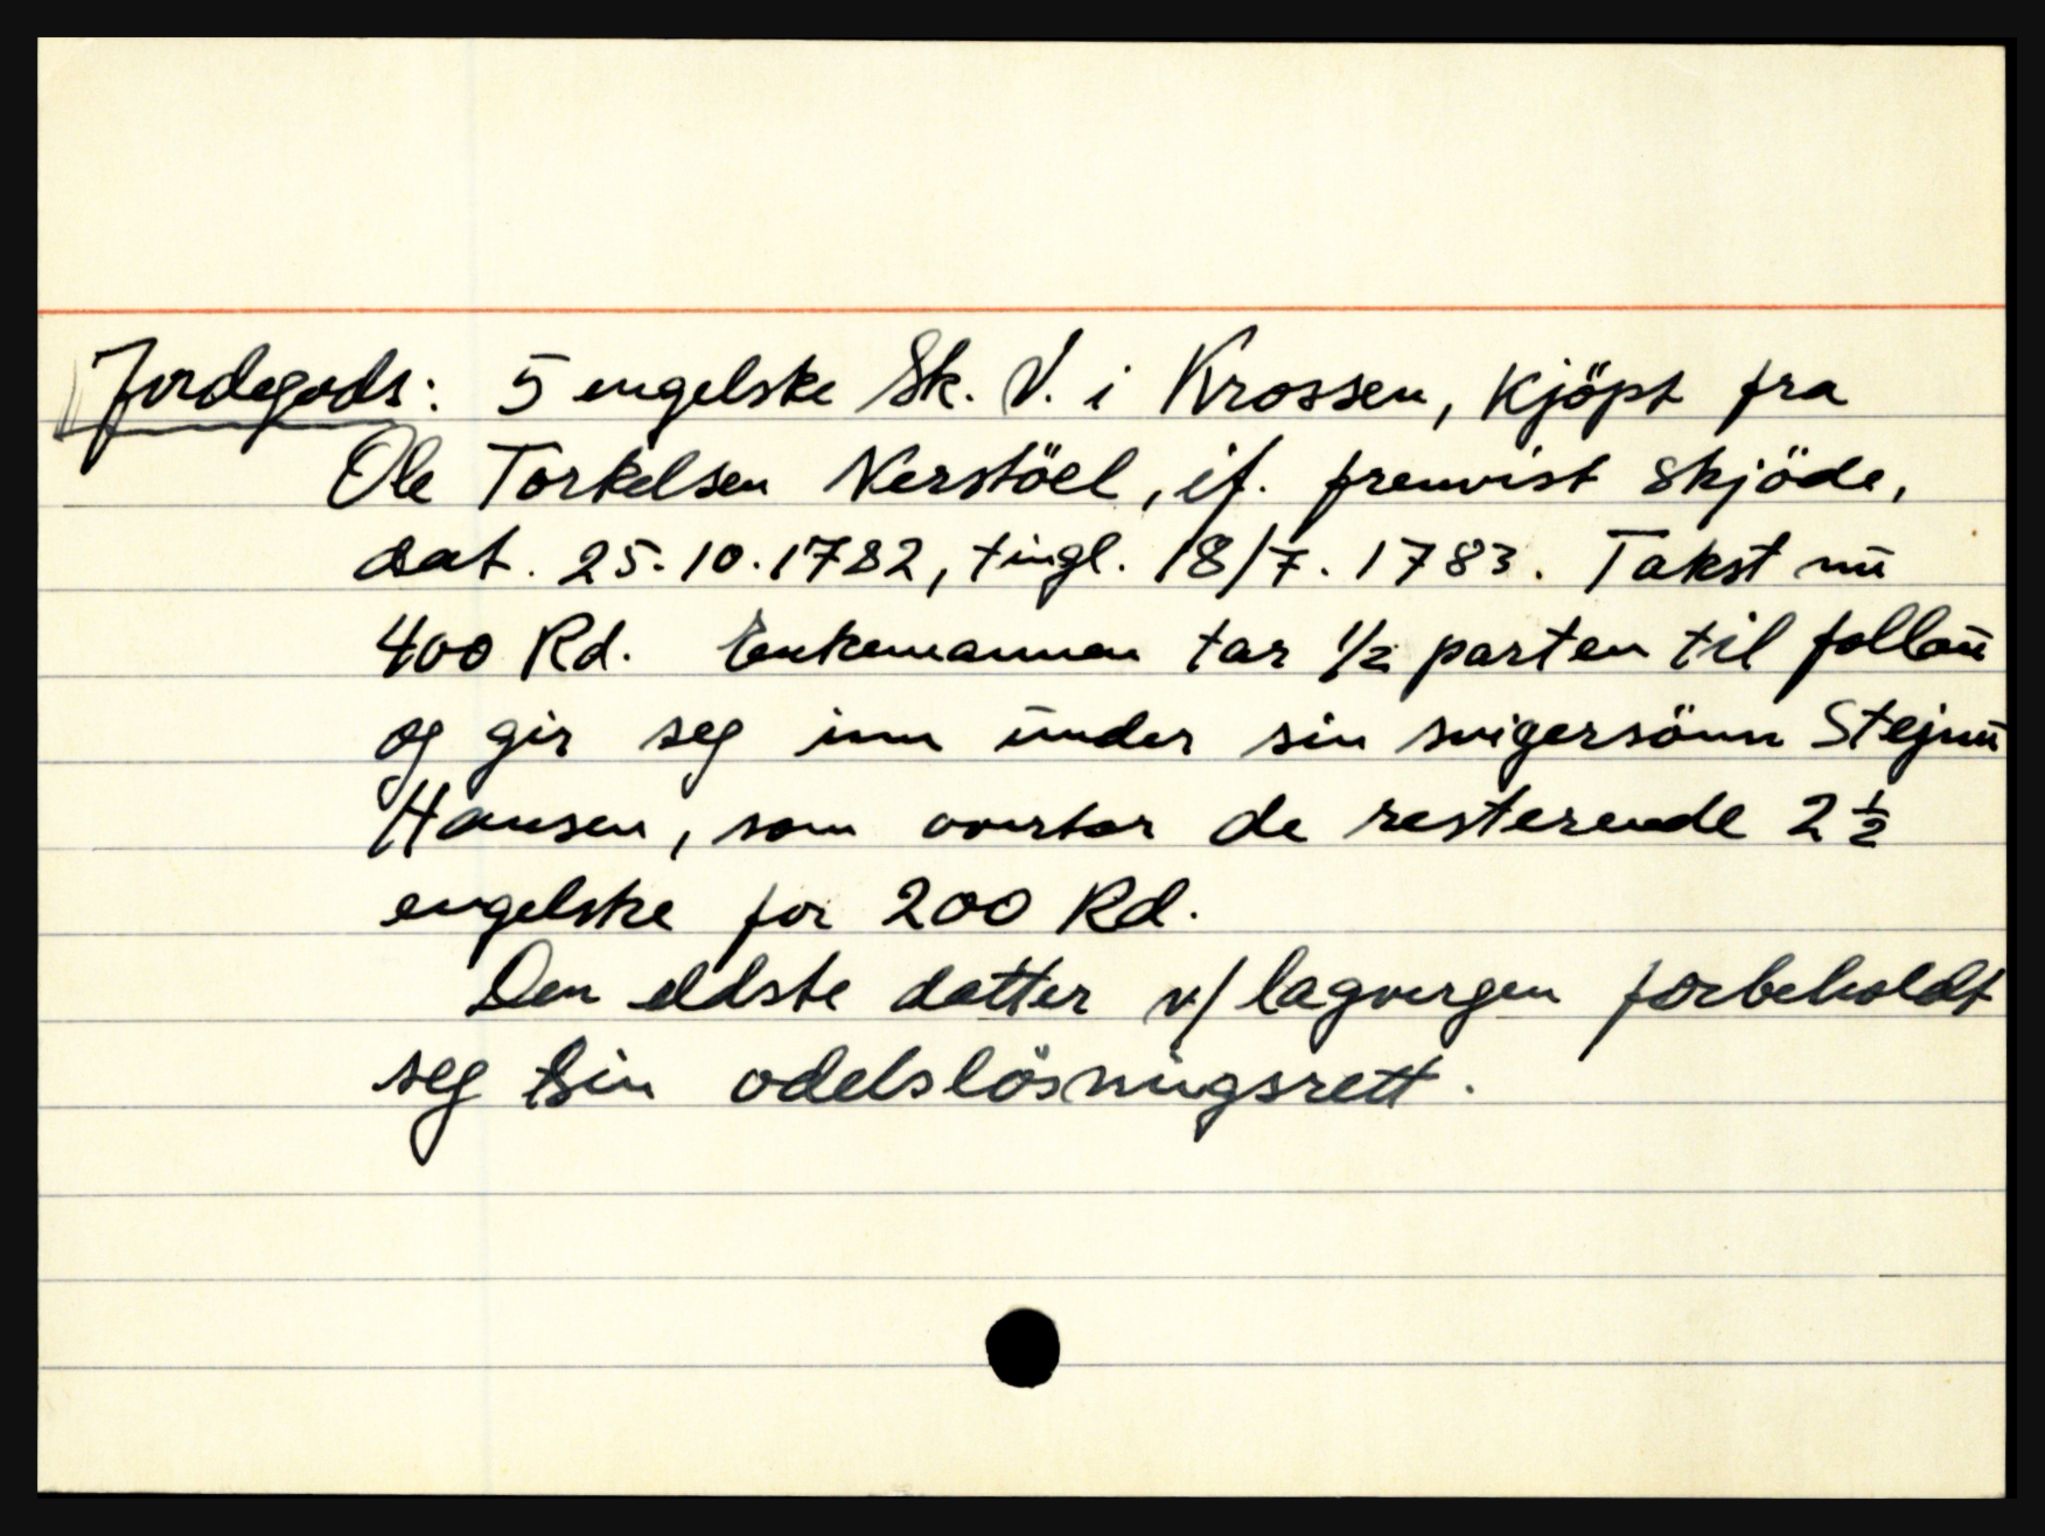 Jordegods: 5 engelske Sk. V. i Krossen, kjöpt fra
Ole Torkelsen Nerstöel, if. fremvist skjöde,
dat. 25.10.1782, tingl. 18/7. 1783. Takst nu
400 Rd. Enkemannen tar 1/2 parten til follau
og gir seg inn under sin svigersönn Stejnu
Hansen, som overtar de resterende 2 1/2
engelske for 200 Rd.
Den eldste datter v/ lagvergen forbeholdt
seg sin odelslösningsrett.